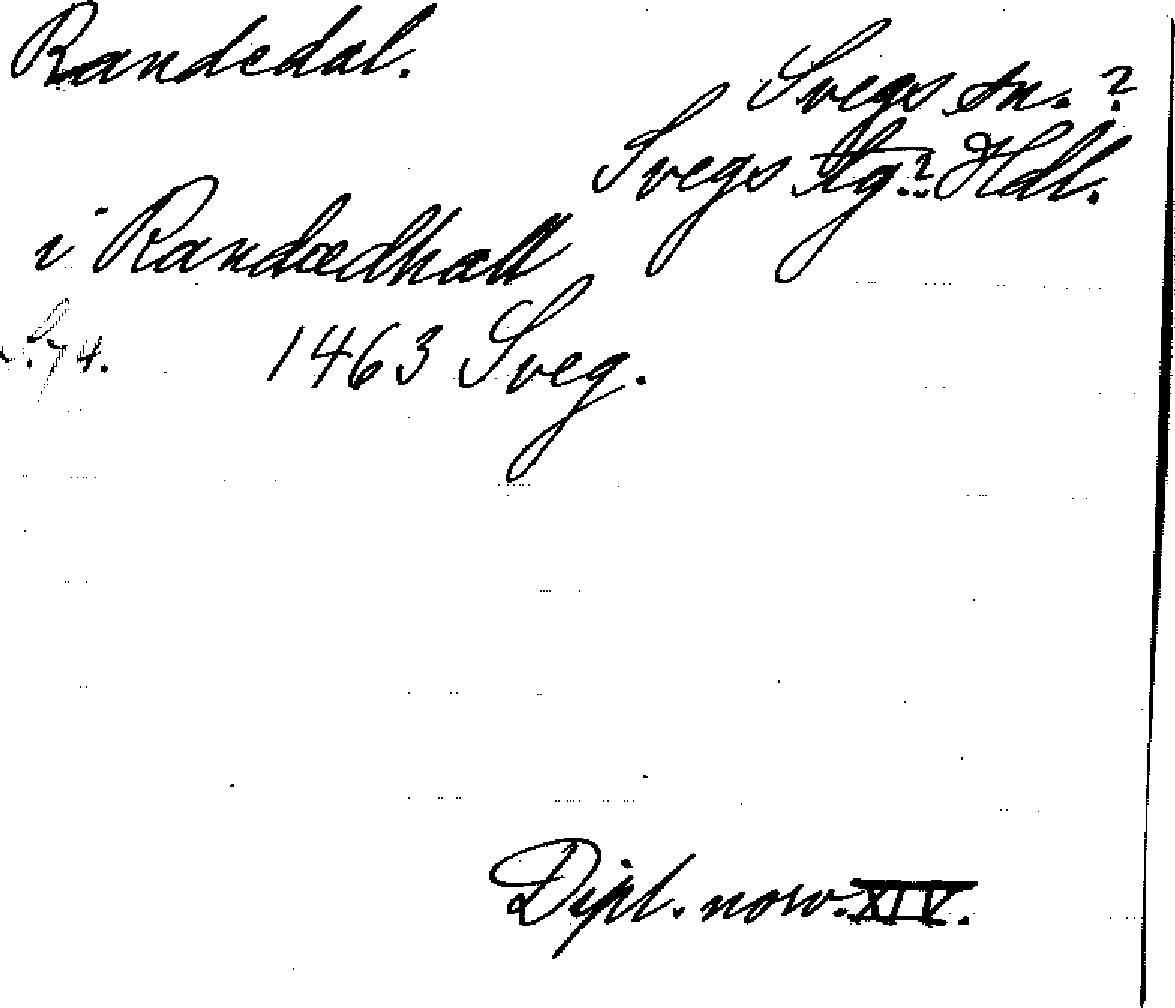 Randedal.
Svegs sn. ?
Svegs tg.? Hdl.
i Randædhall
S. 74. 1463 Sveg.
Dipl. norv. XIV.